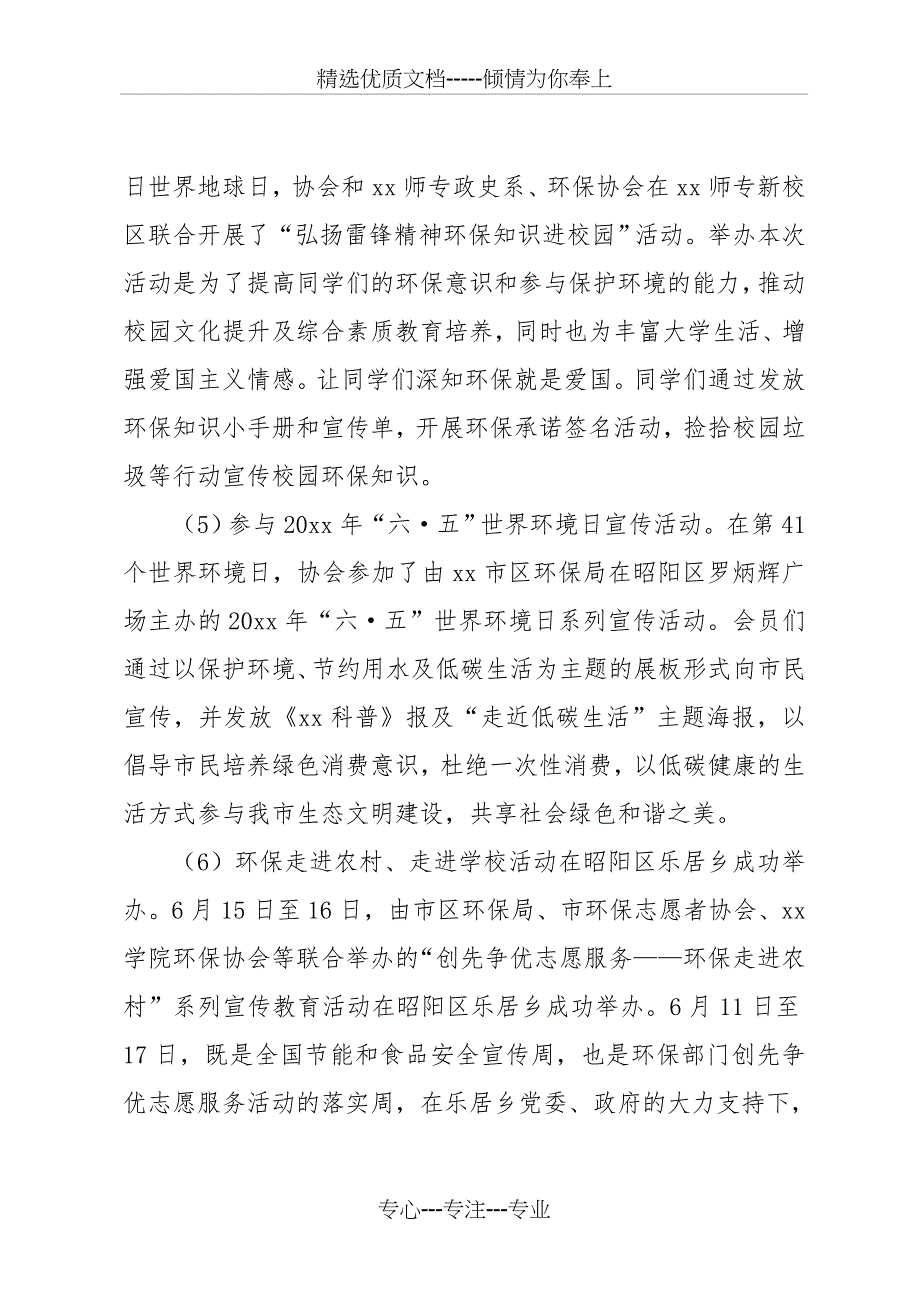 精选优质文档-----倾情为你奉上
日世界地球日，协会和 xx 师专政史系、环保协会在 xx 师专新校
区联合开展了“弘扬雷锋精神环保知识进校园”活动。举办本次
活动是为了提高同学们的环保意识和参与保护环境的能力，推动
校园文化提升及综合素质教育培养，同时也为丰富大学生活、增
强爱国主义情感。让同学们深知环保就是爱国。同学们通过发放
环保知识小手册和宣传单，开展环保承诺签名活动，捡拾校园垃
圾等行动宣传校园环保知识。
（5）参与 20xx 年“六·五”世界环境日宣传活动。在第 41
个世界环境日，协会参加了由 xx 市区环保局在昭阳区罗炳辉广
场主办的 20xx 年“六·五”世界环境日系列宣传活动。会员们
通过以保护环境、节约用水及低碳生活为主题的展板形式向市民
宣传，并发放《xx 科普》报及“走近低碳生活”主题海报，以
倡导市民培养绿色消费意识，杜绝一次性消费，以低碳健康的生
活方式参与我市生态文明建设，共享社会绿色和谐之美。
（6）环保走进农村、走进学校活动在昭阳区乐居乡成功举
办。6 月 15 日至 16 日，由市区环保局、市环保志愿者协会、xx
学院环保协会等联合举办的“创先争优志愿服务——环保走进农
村”系列宣传教育活动在昭阳区乐居乡成功举办。6 月 11 日至
17 日，既是全国节能和食品安全宣传周，也是环保部门创先争
优志愿服务活动的落实周，在乐居乡党委、政府的大力支持下，
专心---专注---专业